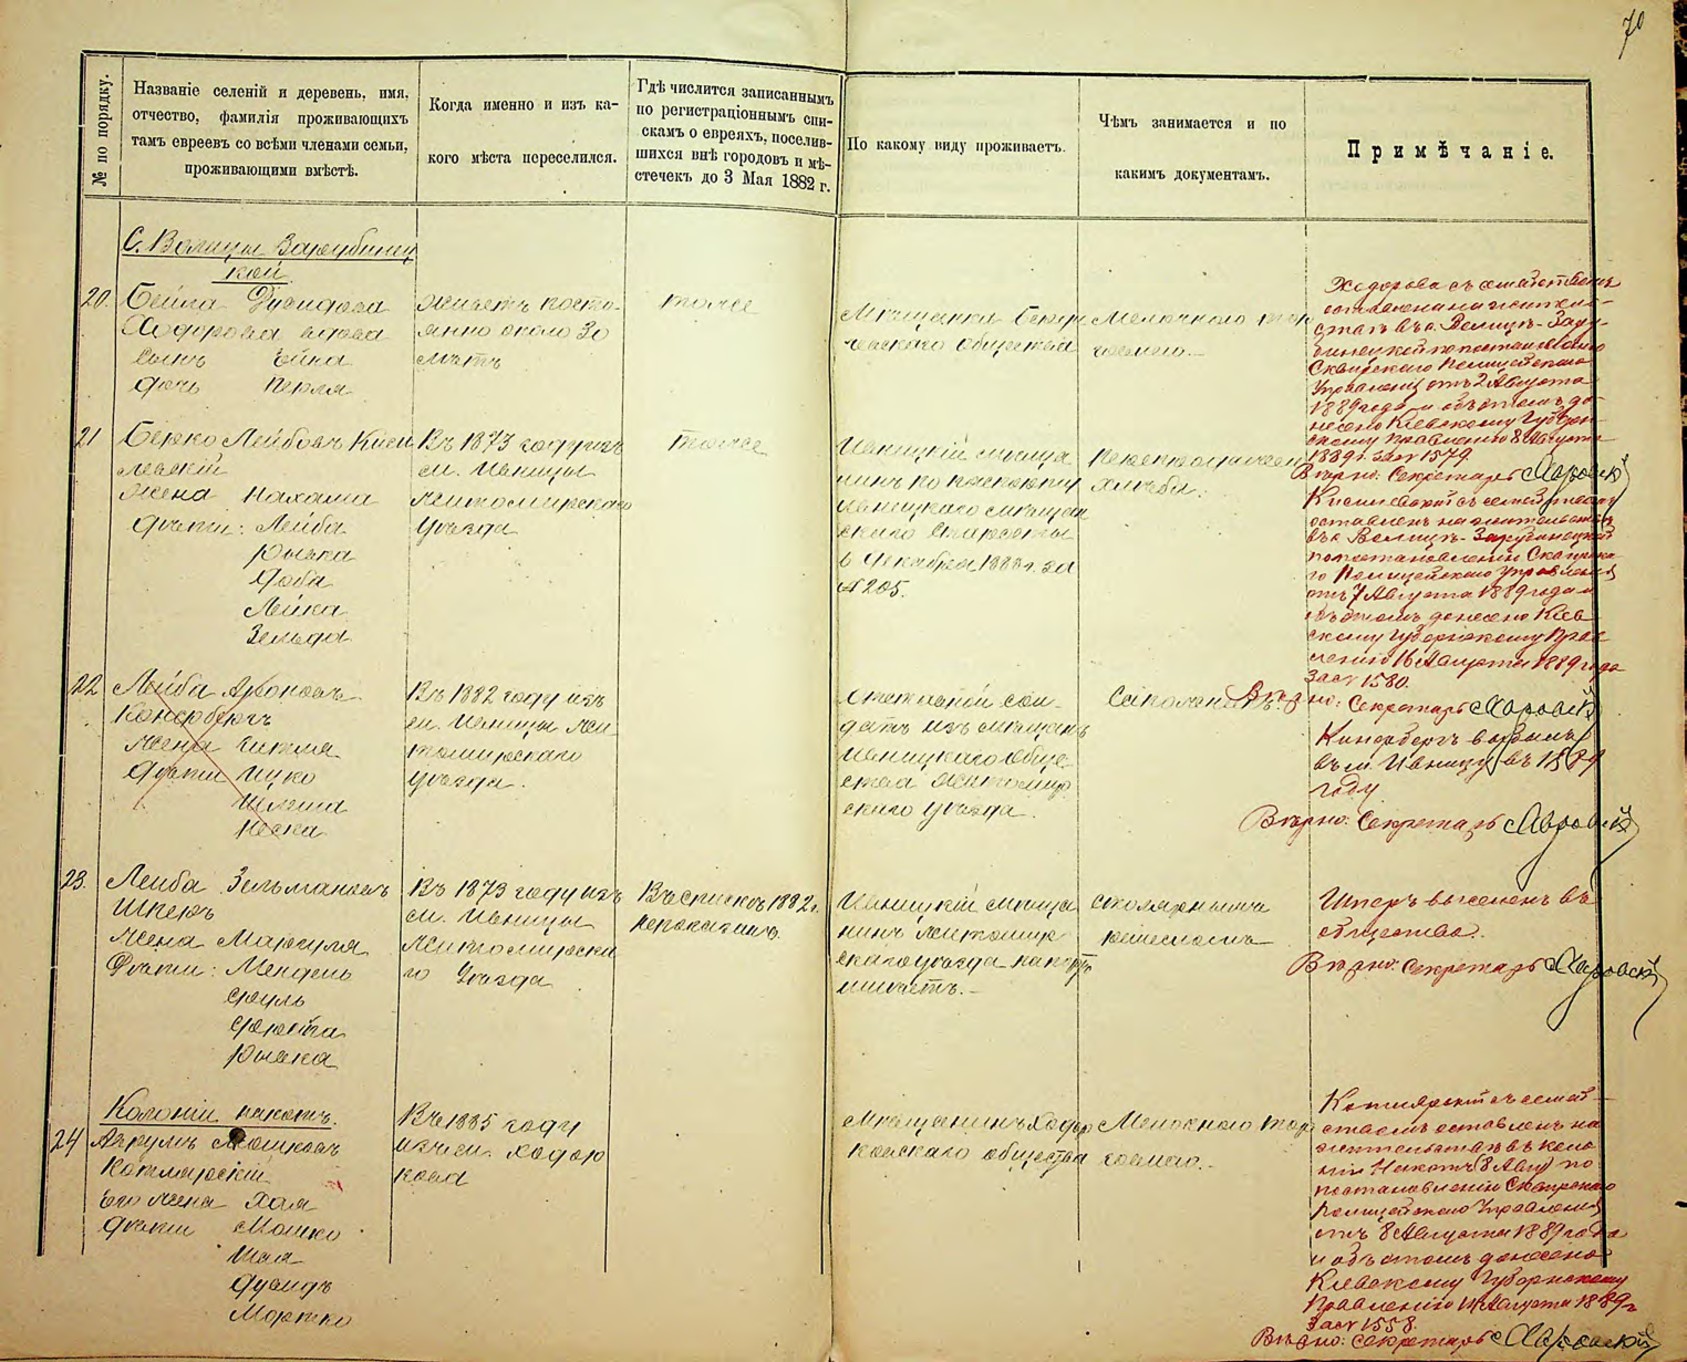 70
№ по порядку.
Названіе селеній и деревень, имя,
отчество, фамилія проживающихъ
тамъ евреевъ со всѣми членами семьи,
проживающими вмѣстѣ.
Когда именно и изъ ка-
кого мѣста переселился.
Гдѣ числится записаннымъ
по регистраціоннымъ спи-
скамъ о евреяхъ, поселив-
шихся внѣ городовъ и мѣ-
стечекъ до 3 Мая 1882 г.
По какому виду проживаетъ.
Чѣмъ занимается и по
какимъ документамъ.
Примѣчаніе.
С. Волицы Зарубинец
кой
20.
Бейла Дувидова
Ходорова вдова
сынъ
дочь Перля
живетъ посто-
янно около 30
лѣтъ
тоже
Мѣщанка
общества
Мелочного тор
говлею.
Ходорова съ семействомъ
оставлена на житель-
ствѣ въ с. Волицѣ-Зару-
бинецкой по постановленію
Сквирского Полицейского
Управленія отъ 2 Августа
1889 года и объ этомъ до-
несено Кіевскому Губерн-
скому Правленію 8 Августа
1889 г. за № 1579
Вѣрно: Секретарь
21
Берко Лейбовъ Киси
левскій
Жена Нахама
дѣти: Лейба
Рывка
Доба
Лейка
Зельда
Въ 1873 году изъ
м. Ивницы
Житомирскаго
уѣзда
тоже
Ивницкій мѣща
нинъ по паспорту
Ивницкаго мѣщан
скаго старосты
6 Декабря 1888 г. за
№ 205.
хлѣба.
Кисилевскій съ семействомъ
оставленъ на жительствѣ
въ с. Волицѣ-Зарубинецкой
по постановленію Сквирска-
го Полицейского Управленія
отъ 7 Августа 1889 года и
объ этомъ донесено Кіев
скому Губернскому Прав
ленію 16 Августа 1889 года
за № 1580.
Вѣрно: Секретарь
22
Лейба Ароновъ
Конерберхъ
Жена Гитля
Дѣти Ицко
Песка
Въ 1882 году изъ
м. Ивницы Жи
томирскаго
уѣзда.
Отставной сол-
датъ изъ мѣщанъ
Ивницкаго обще
ства Житомир
скаго уѣзда.
Конербергъ выбылъ
въ м. Ивницу въ 1889
году
Вѣрно: Секретарь
23.
Лейба Зельмановъ
Шперъ
Жена Маргуля
Дѣти: Мендель
Сруль
Фрейта
Рывка
Въ 1873 году изъ
м. Ивницы
Житомирска
го Уѣзда
Въ спискѣ 1882 г.
не показанъ.
Ивницкій мѣща
нинъ Житомир
скаго уѣзда
столярнымъ
ремесломъ
Шперъ выселенъ въ
общество.
Вѣрно: Секретарь
Колоніи
24
Аврумъ Мошковъ
Котлярскій
Его жена Хая
дѣти Мошко
Шая
Дувидъ
Мортко
Въ 1885 году
изъ м. Ходор
кова
Мѣщанинъ Ходор
ковскаго общества
Мелочного тор
говлею.
Котлярскій съ семей-
ствомъ оставленъ на
жительствѣ въ коло
ніи
постановленію Сквирского
Полицейского Управленія
отъ 8 Августа 1889 года
и объ этомъ донесено
Кіевскому Губернскому
Правленію Августа 1889 г
за № 1558.
Вѣрно: Секретарь